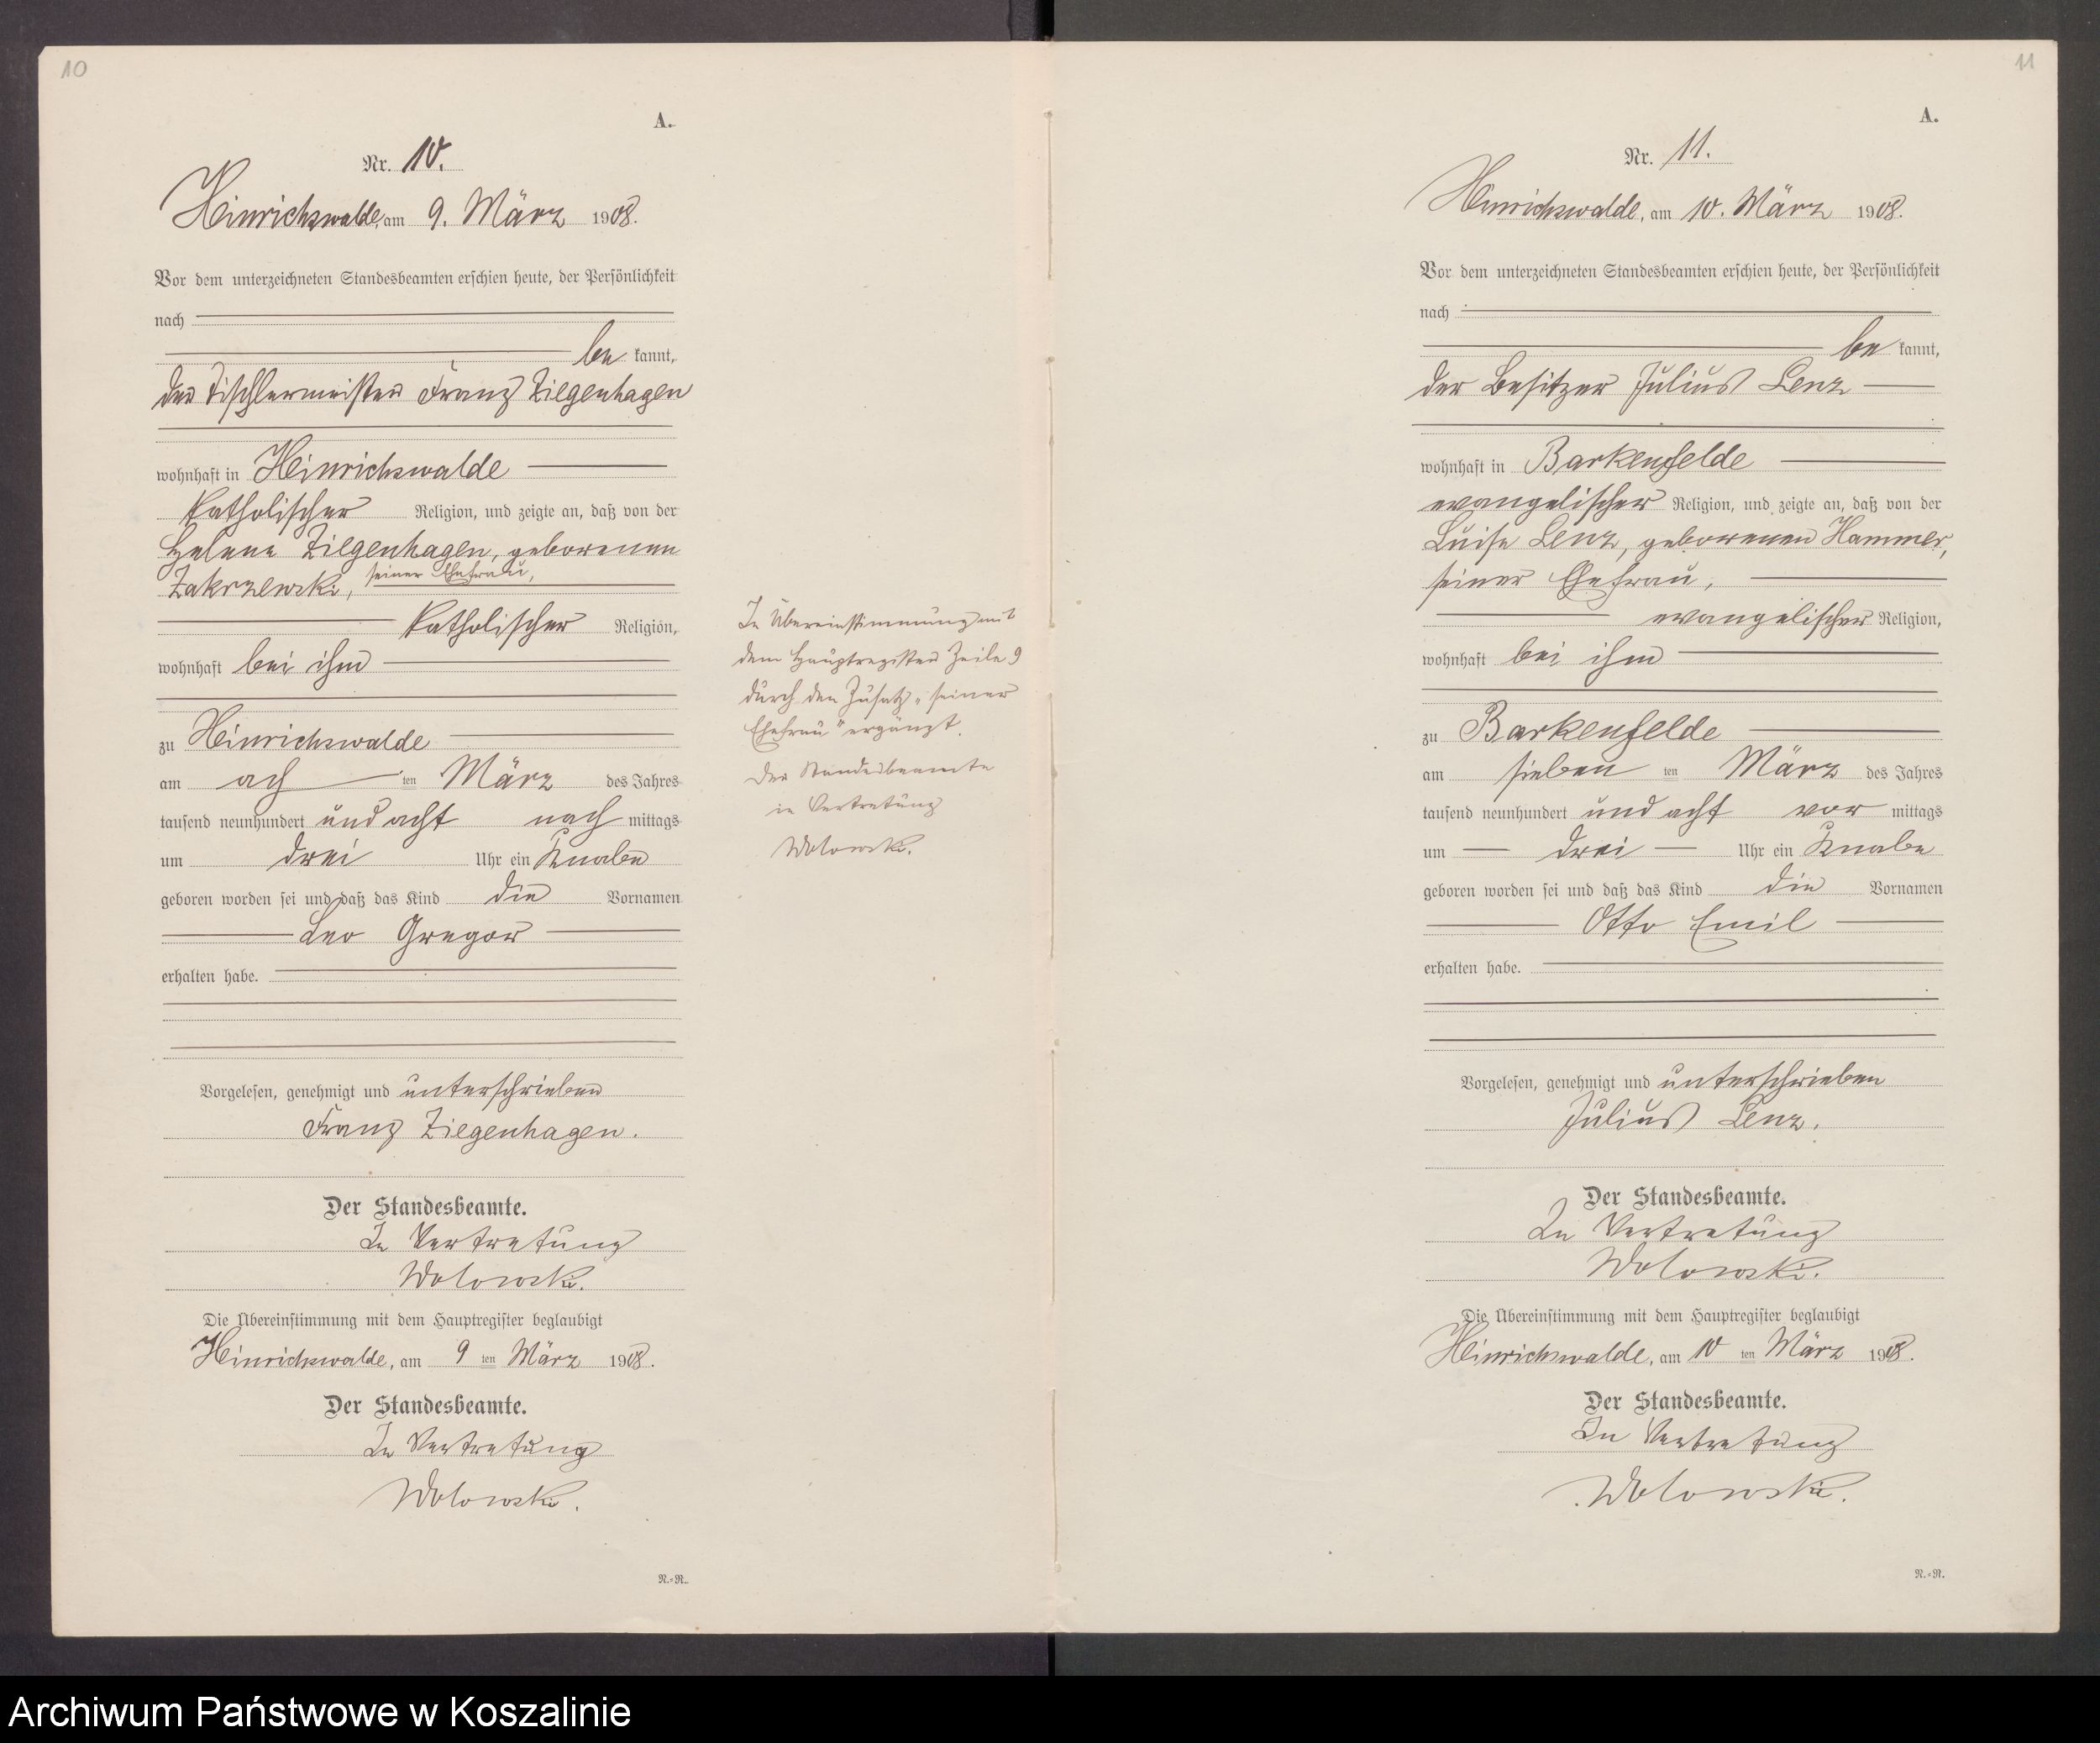 10
A.
Nr. 10.
Heinrichswalde, am 9. März 1908.
Vor dem unterzeichneten Standesbeamten erschien heute, der Persönlichkeit
nach
be kannt,
der Tischlermeister Franz Ziegenhagen
wohnhaft in Heinrichswalde
katholischer Religion, und zeigte an, daß von der
Helene Ziegenhagen, geborenen
Zakrzewski, seiner Ehefrau,
katholischer Religion,
wohnhaft bei ihm
zu Heinrichswalde
am ach ten März des Jahres
tausend neunhundert und acht nach mittags
um drei Uhr ein Knabe
geboren worden sei und daß das Kind die Vornamen
Leo Gregor
erhalten habe.
Vorgelesen, genehmigt und unterschrieben
Franz Ziegenhagen.
Der Standesbeamte.
In Vertretung
Wolowski.
Die Übereinstimmung mit dem Hauptregister beglaubigt
Heinrichswalde, am 9 ten März 1908.
Der Standesbeamte.
In Vertretung
Wolowski.
N.=R.
In Übereinstimmung mit
dem Hauptregister Zeile 9
durch den Zusatz „seiner
Ehefrau" ergänzt.
Der Standesbeamte
in Vertretung
Wolowski.
11
A.
Nr. 11.
Heinrichswalde, am 10. März 1908.
Vor dem unterzeichneten Standesbeamten erschien heute, der Persönlichkeit
nach
be kannt,
der Besitzer Julius Lenz
wohnhaft in Barkenfelde
evangelischer Religion, und zeigte an, daß von der
Luise Lenz, geborenen Hammer,
seiner Ehefrau,
evangelischer Religion,
wohnhaft bei ihm
zu Barkenfelde
am sieben ten März des Jahres
tausend neunhundert und acht vor mittags
um drei Uhr ein Knabe
geboren worden sei und daß das Kind die Vornamen
Otto Emil
erhalten habe.
Vorgelesen, genehmigt und unterschrieben
Julius Lenz.
Der Standesbeamte.
In Vertretung
Wolowski.
Die Übereinstimmung mit dem Hauptregister beglaubigt
Heinrichswalde, am 10 ten März 1908.
Der Standesbeamte.
In Vertretung
Wolowski.
N.=R.
Archiwum Państwowe w Koszalinie